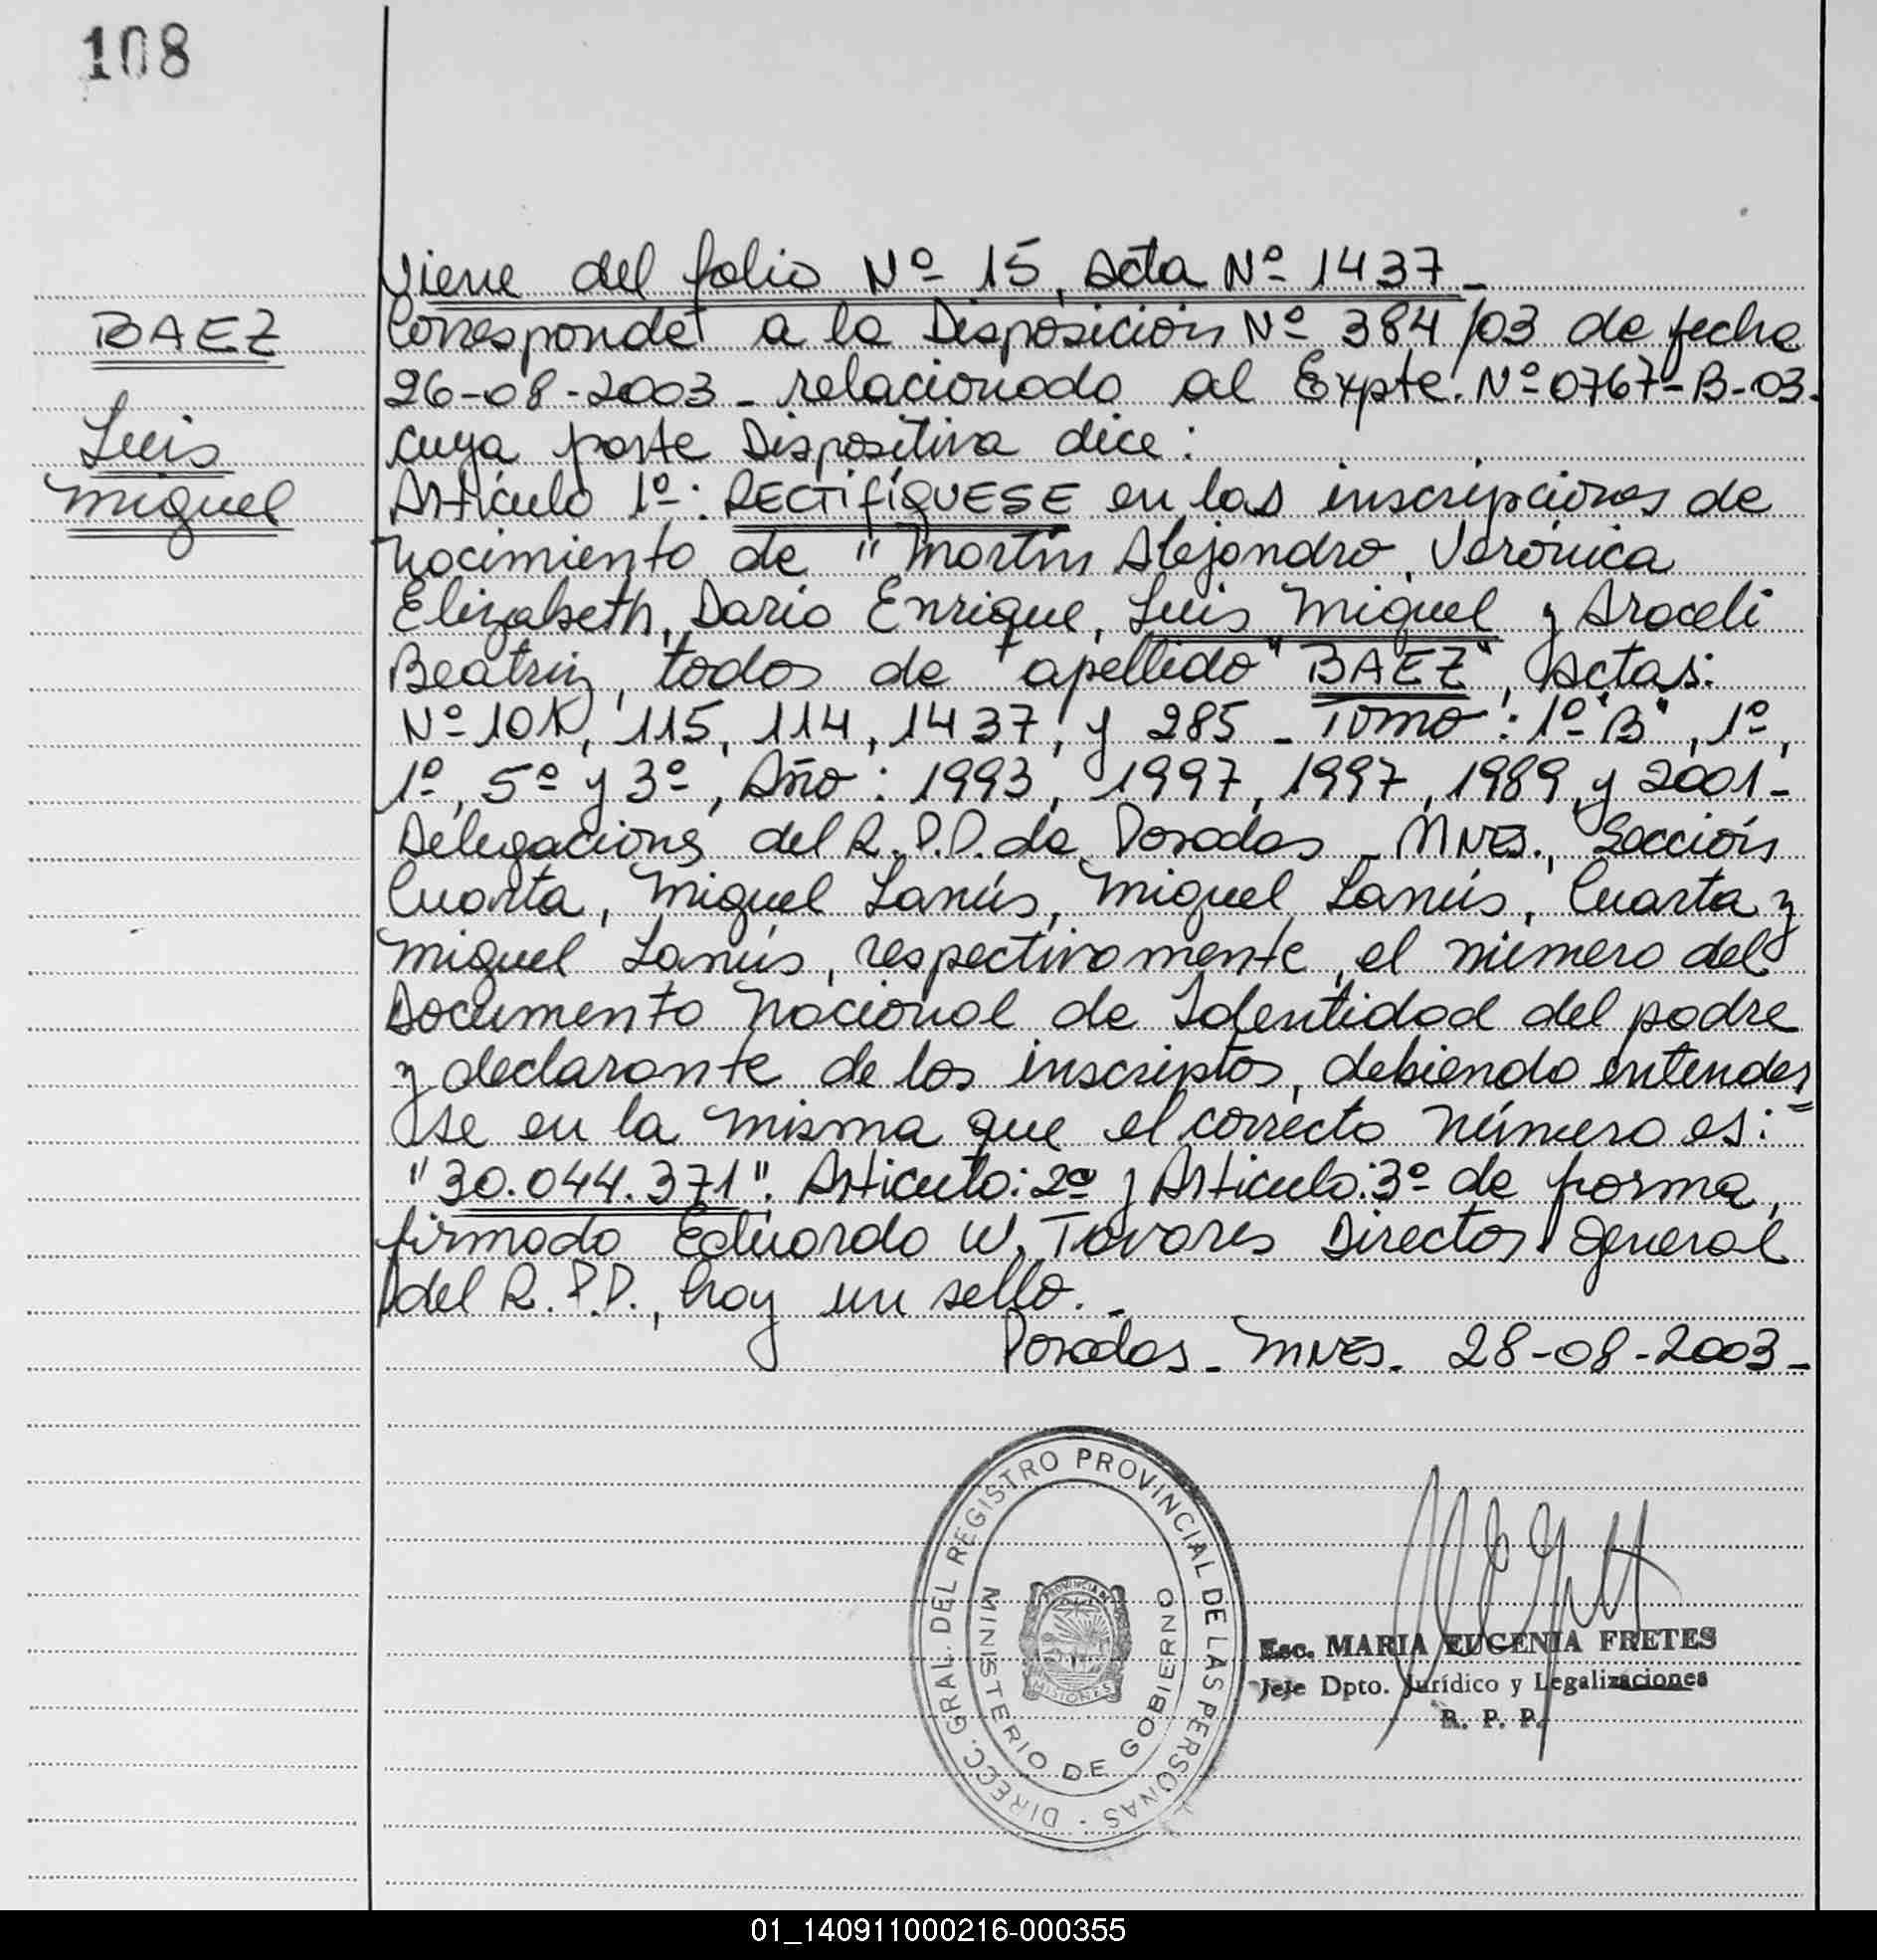 108
Viene del folio Nº 15, Acta Nº 1437 -
BAEZ
Corresponde a la Disposición Nº 384/03 de fecha
26-08-2003 - relacionado al Expte. Nº 0767-B-03.
Luis
cuya parte Dispositiva dice:
Miguel
Artículo 1º: RECTIFÍQUESE en las inscripciones de
nacimiento de "Martín Alejandro, Verónica
Elizabeth, Dario Enrique, Luis Miguel y Araceli
Beatriz, todos de apellido "BAEZ", Actas:
Nº 115, 114, 1437, y 285 - Tomo: 1º "B", 1º,
1º, 5º y 3º, Año: 1993, 1997, 1997, 1989, y 2001 -
Delegaciones del R.P.P. de Posadas - Mnes., Sección
Cuarta, Miguel Lanús, Miguel Lanús, Cuarta y
Miguel Lanús, respectivamente, el número del
Documento Nacional de Identidad del padre
y declarante de los inscriptos, debiendo entender
se en la misma que el correcto número es:
"30.044.371". Articulo: 2º y Articulo: 3º de forma,
firmado Eduardo W. Tavares Director General
del R.P.P., hay un sello. -
Posadas - Mnes. 28-08-2003 -
DIRECC. GRAL. DEL REGISTRO PROVINCIAL DE LAS PERSONAS -
MINISTERIO DE GOBIERNO
PROVINCIA DE
MISIONES
Esc. MARIA EUGENIA FRETES
Jefe Dpto. Jurídico y Legalizaciones
R. P. P.
01_140911000216-000355